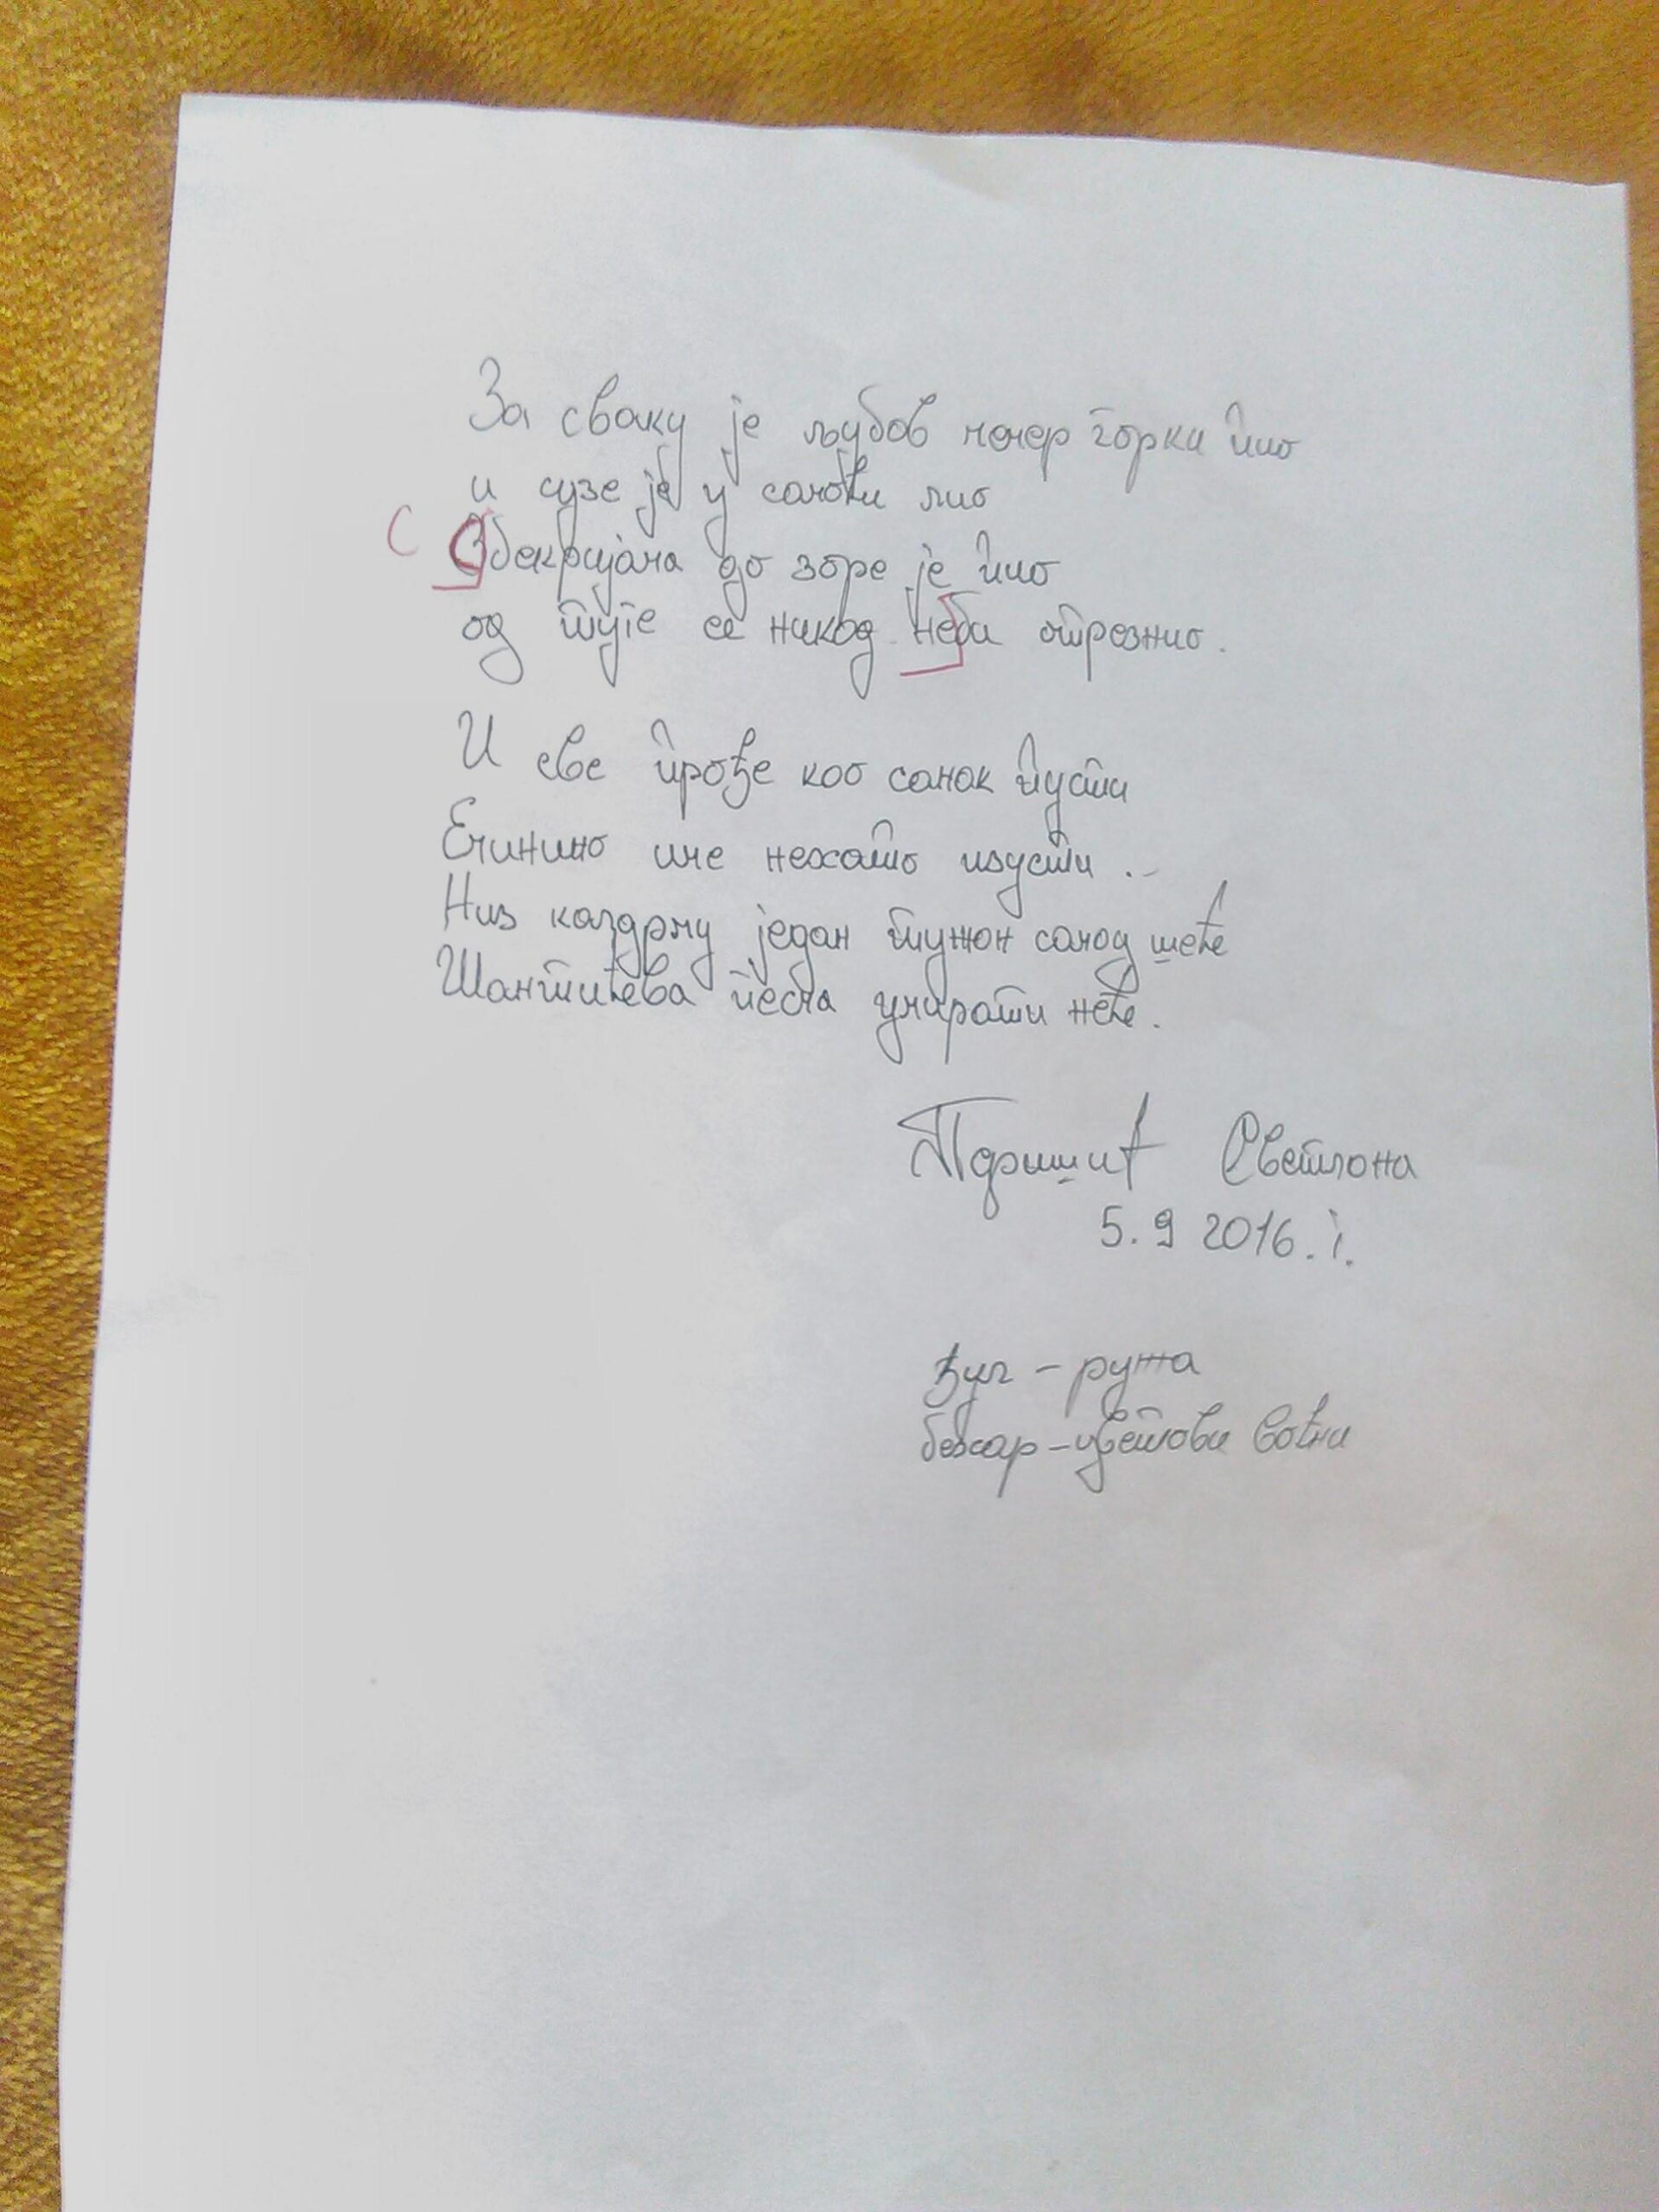 За сваку је љубов пехар горки пио
и сузе је у самоћи лио
С Збекријама до зоре је пио
од туге се никад неби отрезнио.
И све прође као санак пусти
Емининo име нехатo изусти ..
Низ калдрму један тужан самац шеће
Шантићева песма умирати неће.
Першић Светлана
5.9 2016. г.
Ђул - ружа
бехар - цветови воћни